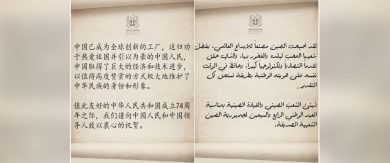 中国已成为全球创新的工厂，这归功
于热爱祖国并引以为豪的中国人民，
中国取得了巨大的经济和技术进步，
以值得高度赞赏的方式极大地维护了
中华民族的身份和形象。
值此友好的中华人民共和国成立74周
年之际，我们谨向中国人民和中国领
导人致以衷心的祝贺。
لقد أصبحت الصين مصنعاً للإبداع العالمي، بفضل
شعبها المحب لبلده والفخور بها، والذي حقق
تقدماً اقتصادياً وتكنولوجياً كبيراً، وحافظ في الوقت
نفسه على هويته الوطنية بطريقة تستحق كل
التقدير.
نهنئ الشعب الصيني والقيادة الصينية بمناسبة
العيد الوطني الرابع والسبعين لجمهورية الصين
الشعبية الصديقة.